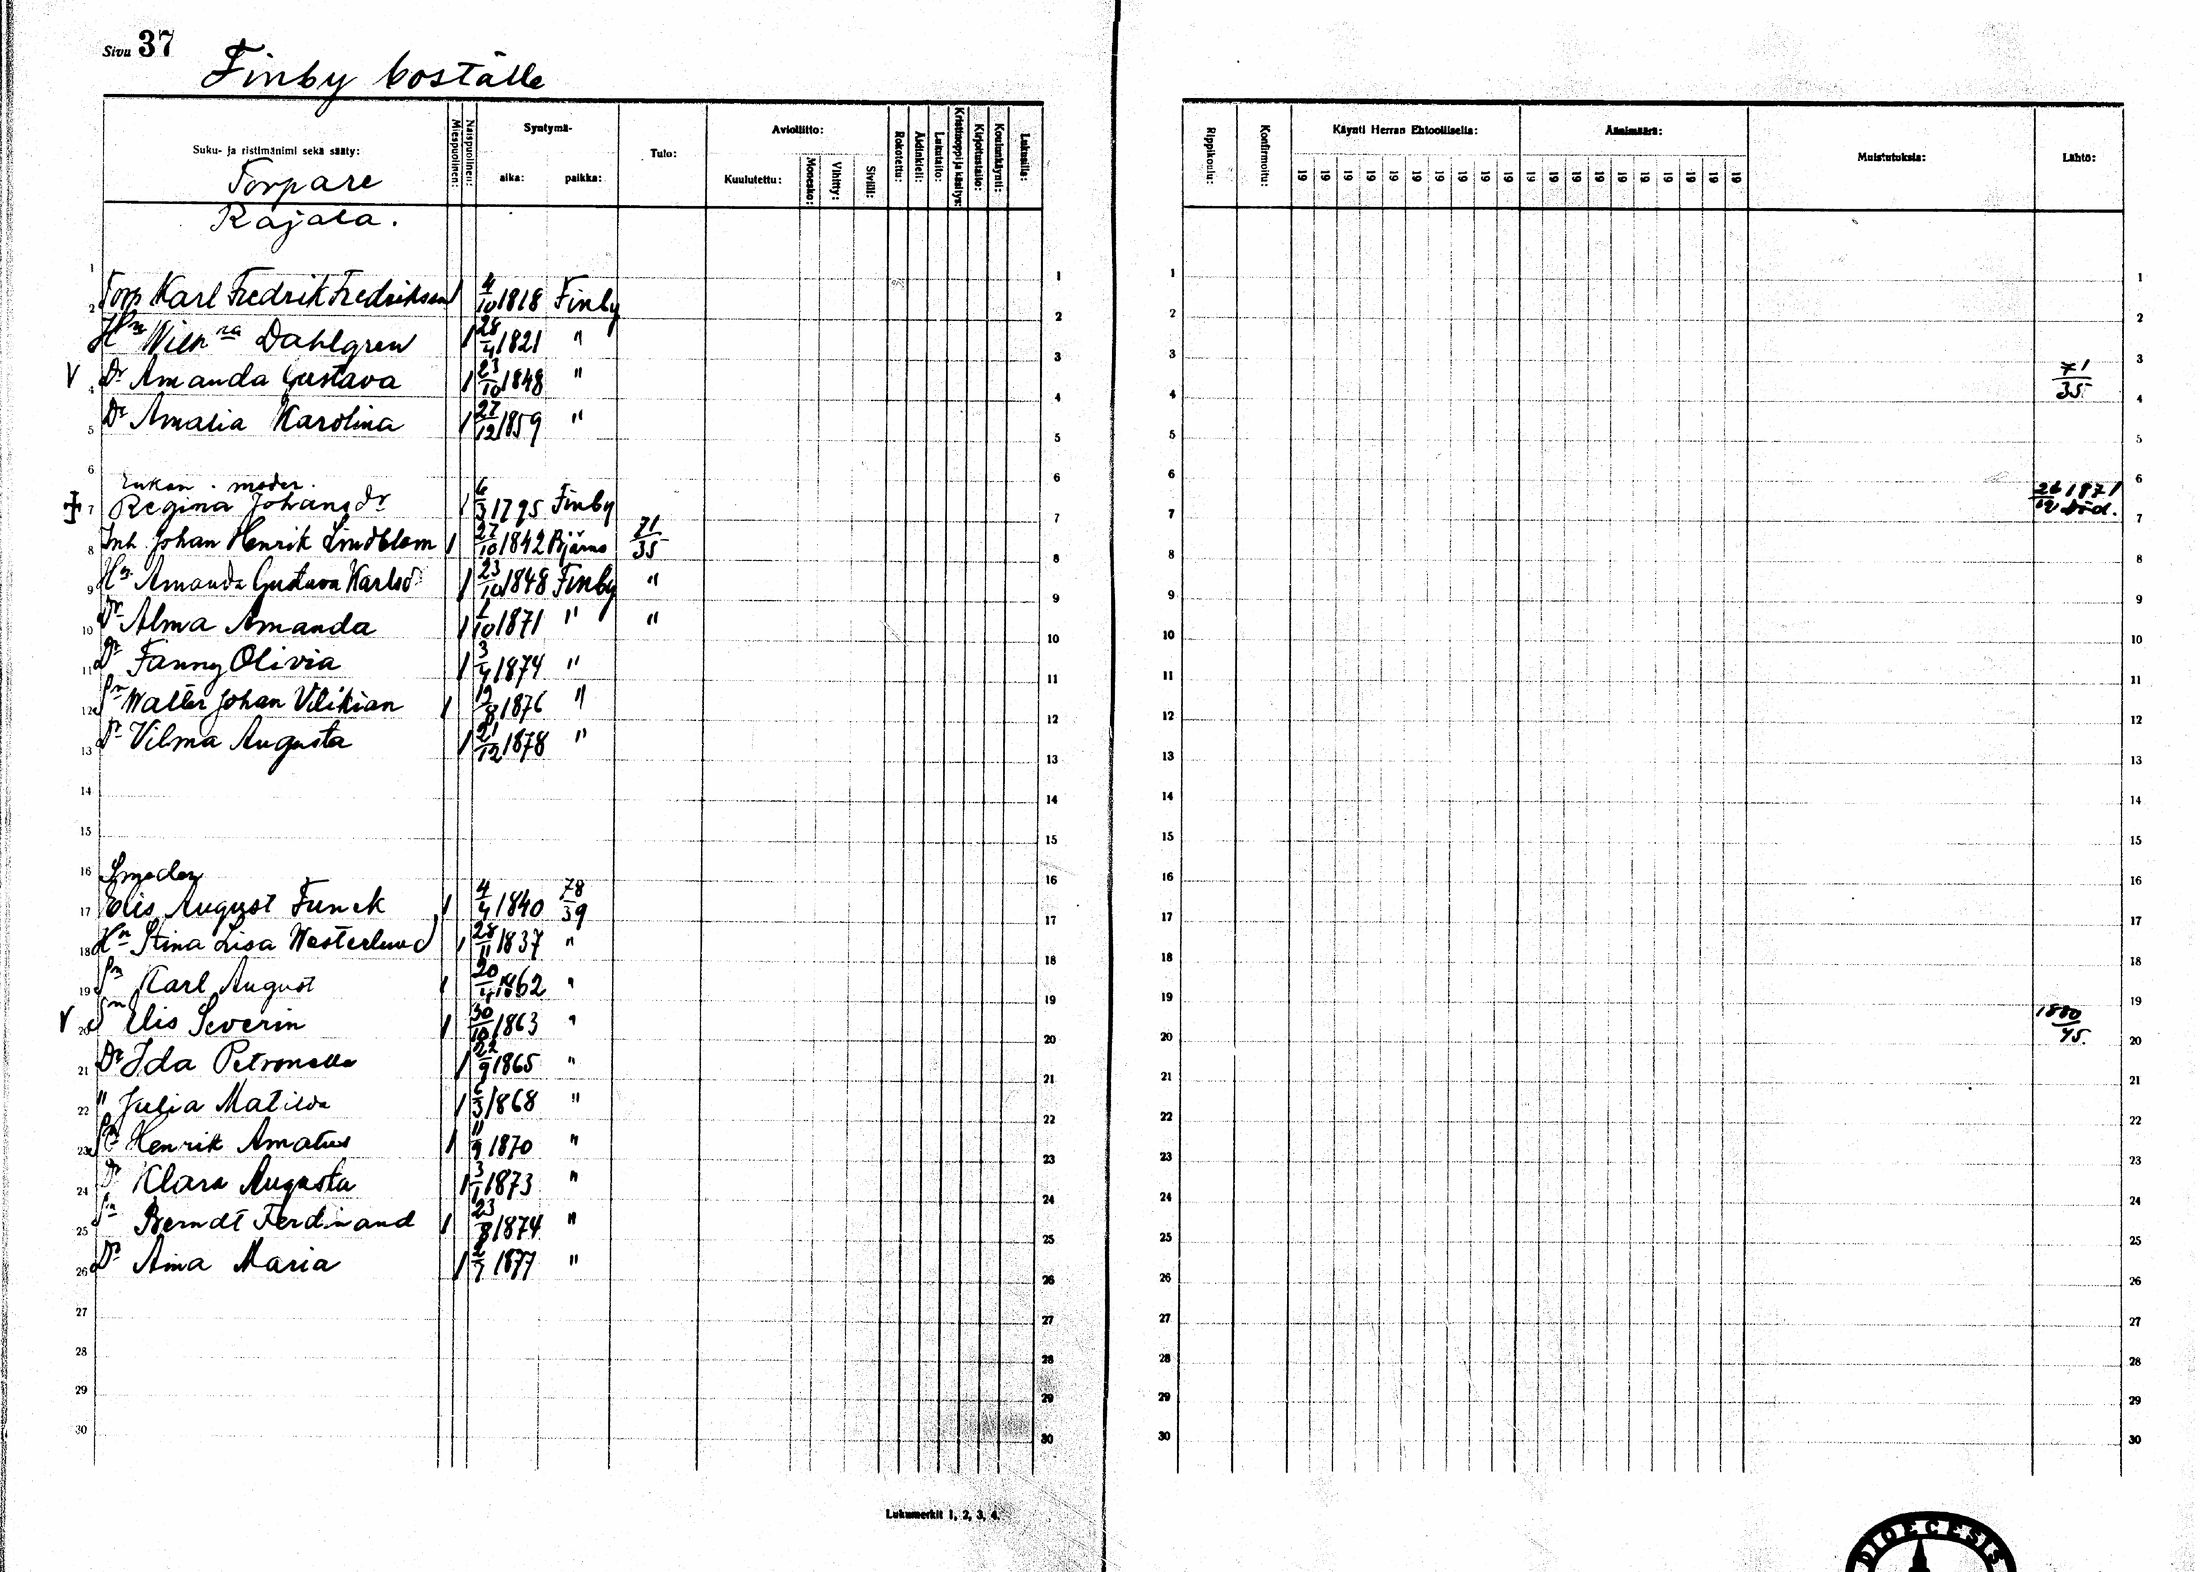 Sivu 37
Finby boställe
Suku- ja ristimänimi sekä sääty: Miespuolinen: Naispuolinen: Syntymä- aika: paikka: Tulo: Avioliitto: Kuulutettu: Monesko: Vihitty: Siviili: Rokotettu: Äidinkieli: Lukutaito: Kristinoppi ja käsitys: Kirjoitustaito: Koulunkäynti: Lukusilla: Rippikoulu: Konfirmoitu: Käynti Herran Ehtoollisella: 19 19 19 19 19 19 19 19 19 19 Äänimäärä: 19 19 19 19 19 19 19 19 19 19 Muistutuksia: Lähtö:
Torpare
Rajala.
1 1 1 1
2 Torp Karl Fredrik Fredriksson 1 4/10 1818 Finby 2 2 2
Hn Wilhna Dahlgren 1 28/4 1821 " 3 3 3
V 4 Dr Amanda Gustava 1 23/10 1848 " 4 4 71/35 4
5 Dr Amalia Karolina 1 27/12 1859 " 5 5 5
6 Enkan. moder. 6 6 6
7 Regina Johansdr 1 6/3 1795 Finby 7 7 26/12 1871 död. 7
8 Inh Johan Henrik Lindblom 1 27/10 1842 Bjärno 71/35 8 8 8
9 Hn Amanda Gustava Karlsd 1 23/10 1848 Finby " 9 9 9
10 Dr Alma Amanda 1 1/10 1871 " " 10 10 10
11 Dr Fanny Olivia 1 3/4 1874 " 11 11 11
12 Sn Walter Johan Vilikian 1 12/8 1876 " 12 12 12
13 Dr Vilma Augusta 1 21/12 1878 " 13 13 13
14 14 14 14
15 15 15 15
16 Smeden 16 16 16
17 Elis August Funck 1 4/4 1840 78/39 17 17 17
18 Hn Stina Lisa Westerlund 1 28/11 1837 " 18 18 18
19 Sn Karl August 1 20/4 1862 " 19 19 19
V 20 Sn Elis Severin 1 30/10 1863 " 20 20 1880/45. 20
21 Dr Ida Petronella 1 22/9 1865 " 21 21 21
22 " Julia Matilda 1 6/3 1868 " 22 22 22
23 Sn Henrik Amatus 1 11/9 1870 " 23 23 23
24 Dr Klara Augusta 1 3/1 1873 " 24 24 24
25 Sn Berndt Ferdinand 1 23/8 1874 " 25 25 25
26 Dr Aina Maria 1 2/7 1877 " 26 26 26
27 27 27 27
28 28 28 28
29 29 29 29
30 30 30 30
Lukumerkit 1, 2, 3, 4.
DIOECESIS